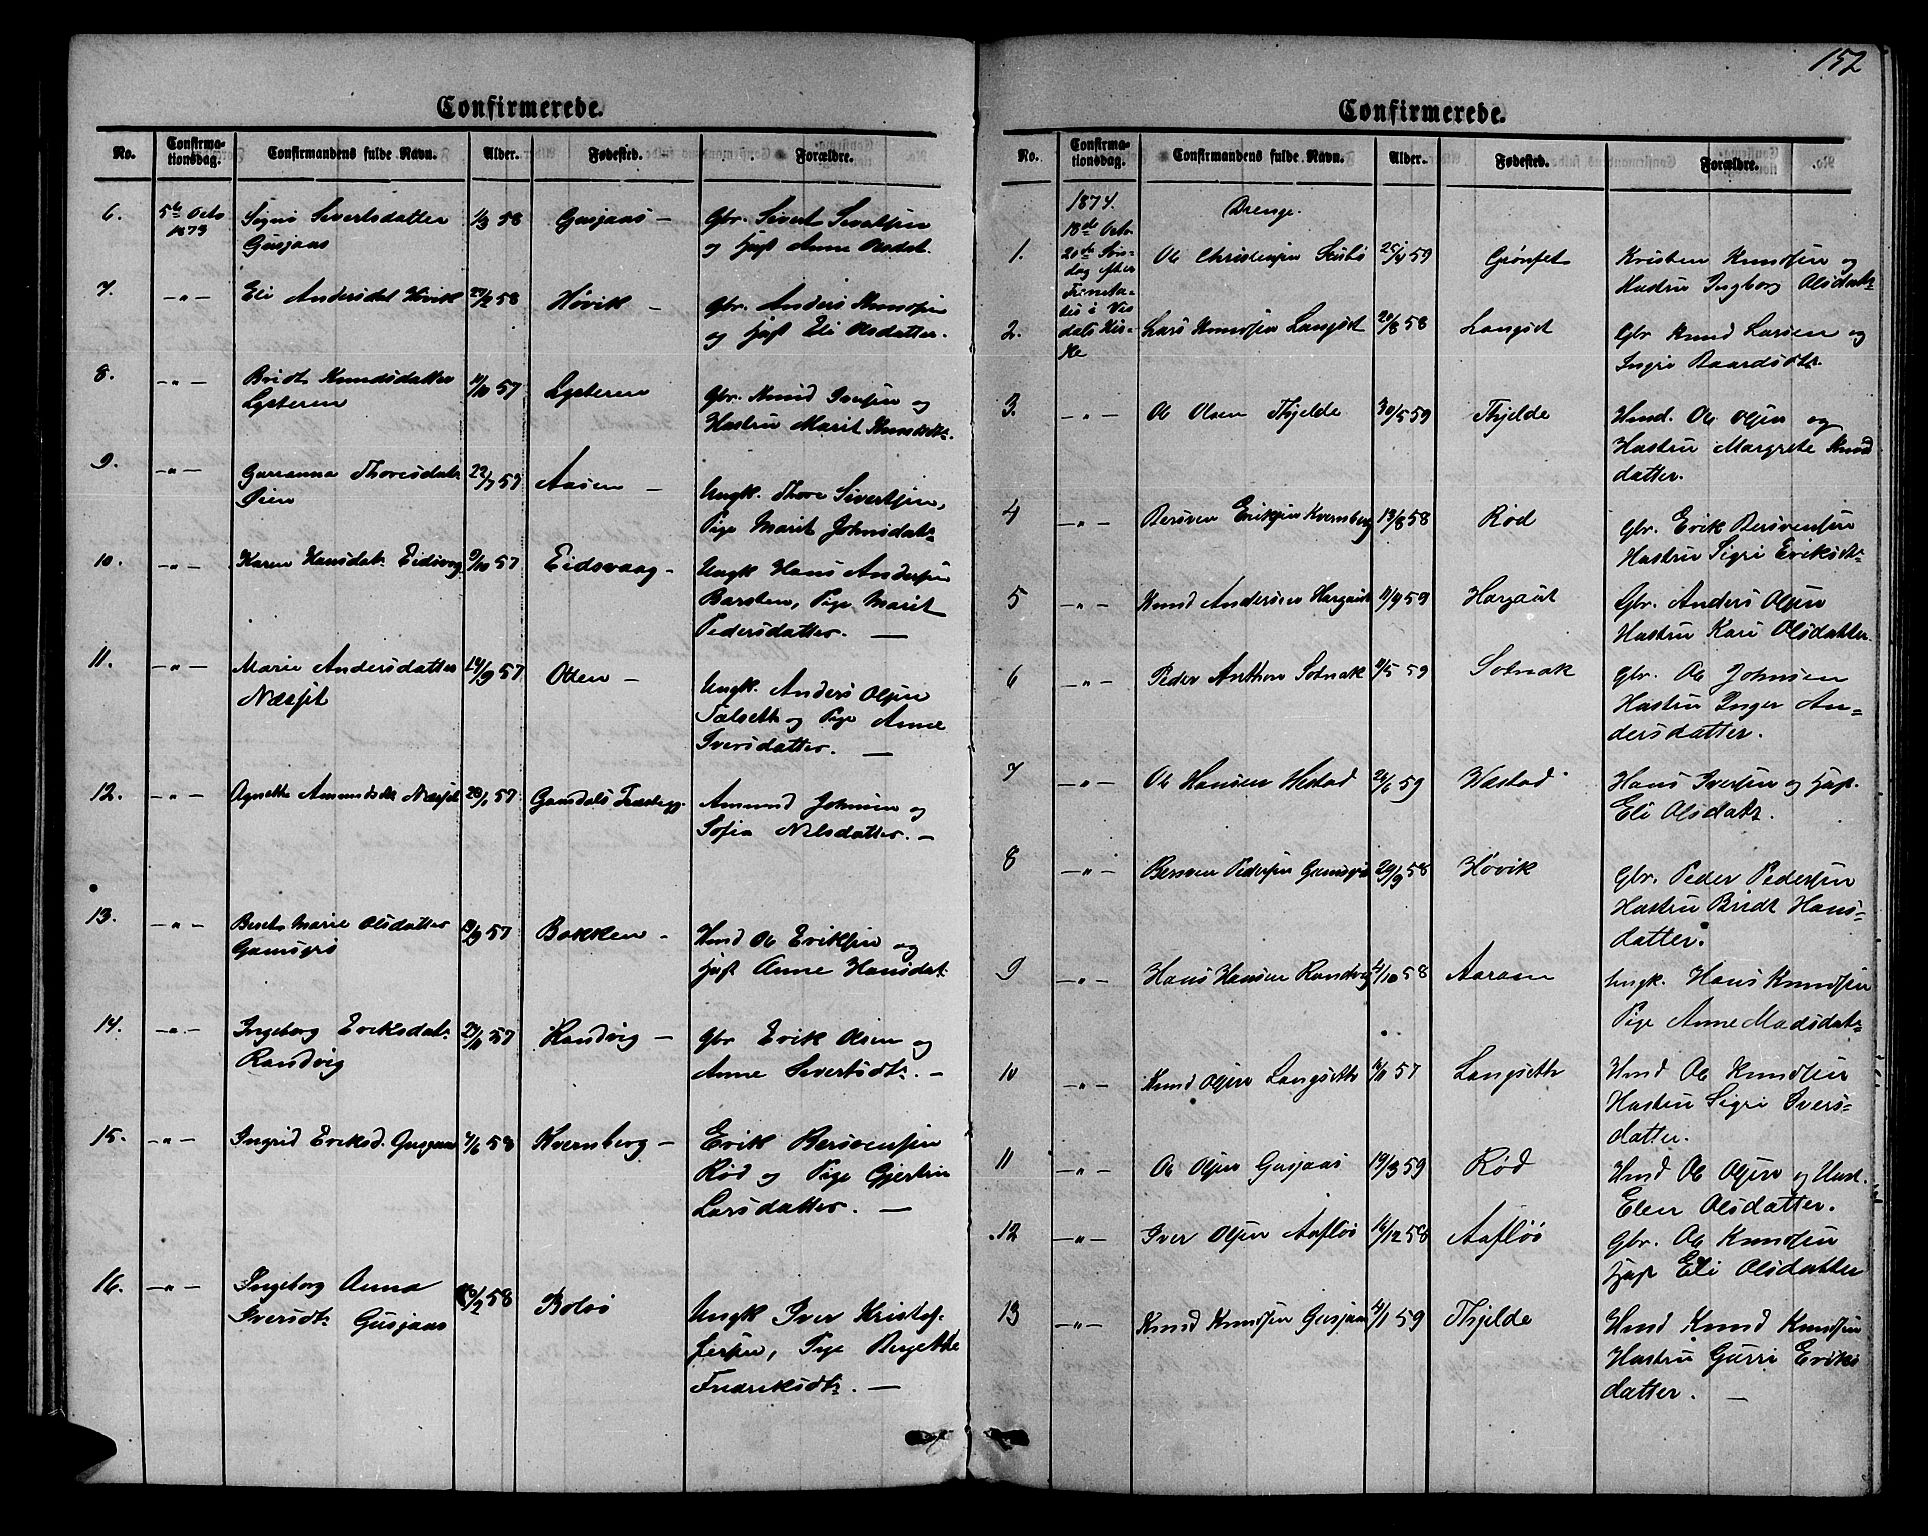 Confirmerede.
No.
Confirma-
tionsdag.
Confirmandens fulde Navn.
Alder.
Fødested.
Forældre.
6.
5te Octo
1873
Sivertsdatter
Gusjaas
1/3 58
Gusjaas —
Gbr. Sivert Sivertsen
og Hust Anne Olsdat.
7.
—"—
Eli Andersdat Høvik
27/2 58
Høvik —
Gbr. Anders Knudsen
og Hust Eli Olsdatter.
8.
—"—
Bridt Knudsdatter
Lysteren
11/10 57
Lysteren
Gbr. Knud Iversen og
Hustru Marit Knudsdtr.
9.
—"—
Thoresdatr
Øien
22/7 57
Aasen —
Ungk. Thore Sivertsen,
Pige Marit Johnsdatr
10.
—"—
Karen Hansdatr Eidsvag
9/10 57
Eidsvaag —
Ungk Hans Andersen
Barsten, Pige Marit
Pedersdatter. —
11.
—"—
Marie Andersdatter
Næsjet
14/9 57
Oden —
Ungk. Anders Olsen
Talseth og Pige Anne
Iversdatter. —
12.
—"—
Agnethe Amundsdtr Næsjet
28/1 57
Amund Johnsen og
Sofia Nilsdatter. —
13.
—"—
Beret Marie Olsdatter
Gamsgrø
13/9 57
Bakken —
Hmd Ole Eriksen og
Hust Anne Hansdat.
14.
—"—
Ingeborg Eriksdatr
Randvig
29/11 57
Randvig —
Gbr Erik Olsen og
Anne Sivertsdtr. —
15.
—"—
Ingrid Eriksd. Gusjaas
4/6 58
Kvernberg —
Erik Bersvensen
Rød og Pige Gjertin
Larsdatter. —
16.
—"—
Ingeborg Anna
Iversdtr Gusjaas
/2 58
Bolsø
Ungk Iver Kristof-
fersen, Pige Bergethe
Fredriksdtr. —
152
Confirmerede.
No.
Confirma-
tionsdag.
Confirmandens fulde Navn.
Alder.
Fødested.
Forældre.
1874.
18de Octr
20de Søn-
dag efter
Trinita-
tis i Vis-
dals Kir-
ke
Drenge.
1.
Ole Christensen
25/4 59
Grønset
Kristen Knudsen og
Hustru Ingborg Olsdatr
2.
Lars Knudsen Langset
20/8 58
Langset
Gbr Knud Larsen og
Ingri Baardsdtr.
3.
—"—
Ole Olsen Thjelde
30/5 59
Thjelde
Hmd. Ole Olsen og
Hustru Margrete Knud
datter.
4
—"—
Bersven Eriksen Kvernberg
13/8 58
Rød
Gbr. Erik Bersvensen
Hustru Sigri Eriksdtr
5
—"—
Knud Andersen Hargaut
11/4 59
Hargaut
Gbr. Anders Olsen
Hustru Kari Olsdatter
6
—"—
Peder Anthon Solnak
11/5 59
Solnak
Gbr. Ole Johnsen
Hustru Inger An-
dersdatter.
7
—"—
Ole Hansen Hestad
24/6 59
Hestad
Hans Iversen og Hust.
Eli Olsdatr.
8
—"—
Bersven Pedersen Gamsgrø
29/9 58
Høvik
Gbr. Peder Pedersen
Hustru Bridt Hans-
datter.
9
—"—
Hans Hansen Randvig
4/10 58
Aaram
Ungk. Hans Knudsen
Pige Anne Madsdatr
10
—"—
Knud Olsen Langseth
11/11 57
Langseth
Hmd Ole Knudsen
Hustru Sigri Ivers-
datter.
11
—"—
Ole Olsen Gusjaas
19/3 59
Rød
Hmd Ole Olsen og Hust.
Elen Olsdatter.
12
—"—
Iver Olsen Aafløi
16/12 58
Aafløi
Gbr. Ole Knudsen
Hust Eli Olsdatter
13
—"—
Knud Knudsen Gusjaas
4/1 59
Thjelde
Hmd Knud Knudsen
Hustru Gurri Eriks
datter. —